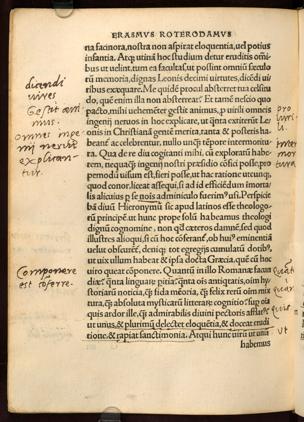 ERASMVS ROTERODAMVS
na facinora, nostra non aspirat eloquentia, ued potius
infantia. Atq; utinā hoc studium detur eruditis omi
bus ut uelint, tum ea facultas, ut possint omniū seculo
rū memoria, dignas Leonis decimi uirtutes, dicēdi ui
ribus exæquare. Me quidē procul absterret tua celsitu
do, quē enim illa non absterreat? Et tamē nescio quo
pacto, mihi uehemēter gestit animus, p uirili omneis
ingenij neruos in hoc explicare, ut
onis in Christianā gentē merita, tanta & posteris ha
beant̄ ac celebrentur, nullo unq̄ tēpore intermoritu
ra. Qua de re diu cogitanti mihi, cū explorarē ha
rem, nequaq̄ ingenij nostri præsidio cōfici posse,
modū uisum est, fieri posse, ut hac ratione utcunq;
quod conor, liceat assequi, si ad id efficiēdum īmorta
lis alicuius
bā diuū Hieronymū sic apud latinos esse theologo
rū principē ut hunc prope solū habeamus theologi
dignū cognomine, non q̄d cæteros damnē, sed quod
illustres alioqui, si cū hoc cōferant̄, ob hui⁹ eminentiā
uelut obscurēt̄, deniq; tot egregijs cumulatū dotib⁹,
ut uix ullum habeat & ipsa docta Græcia, quē cū hoc
uiro queat cōponere. Quantū in illo Romanæ facun
diæ? quāta linguarū pitia? quāta oīs antiquitatis, oīm hy
storiarū noticia, q̄ fida mēoria, q̄ felix rerū oīm mix
tura, q̄ absoluta mysticarū litterarū cognitio? sup oīa
quis ardor ille, q̄ admirabilis diuini pectoris afflatus?
ut unus, & plurimū delectet eloquētia, & doceat erudi
tione, & rapiat sanctimonia. Atqui hunc uirū ut unū
habemus
dicendi
vires
Gestit ani
mus.
omnes inge
nij neruos
explican-
tur.
Componere
est coferre.
ut